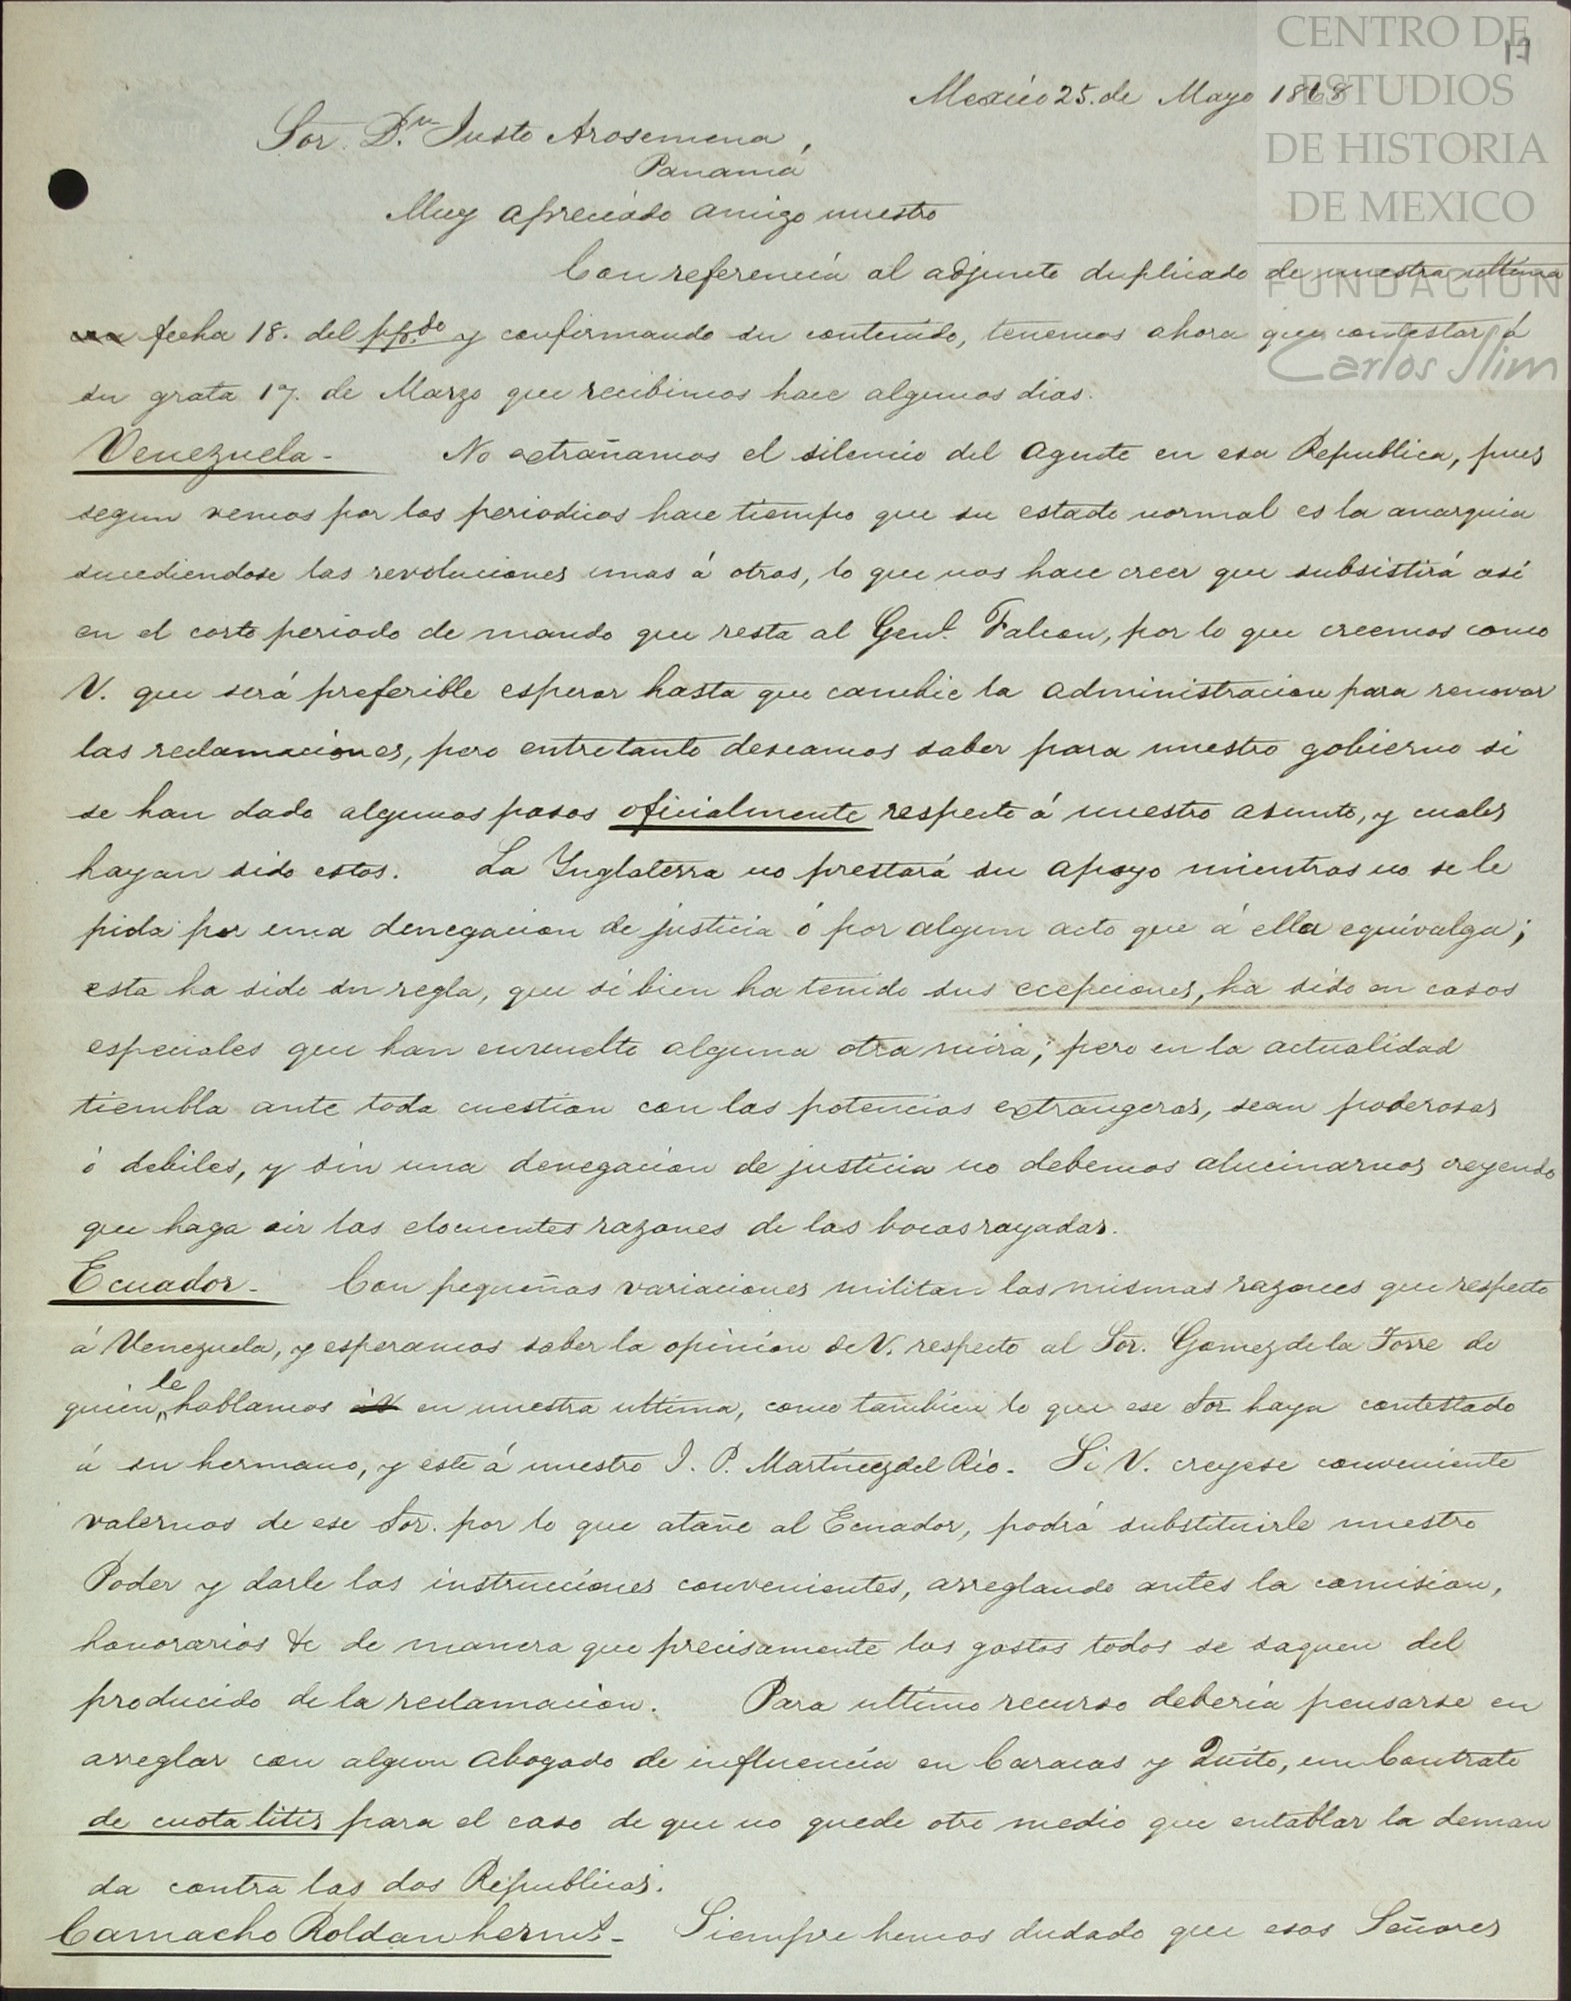 CENTRO DE
ESTUDIOS
DE HISTORIA
DE MEXICO
FUNDACIÓN
Carlos Slim
17
Mexico 25. de Mayo 1868
Sor. D.n Justo Arosemena,
Panamá
Muy apreciado amigo nuestro
Con referencia al adjunto duplicado de nuestra ultima
fecha 18. del pp.do y confirmando su contenido, tenemos ahora que contestar á
su grata 17. de Marzo que recibimos hace algunos dias.
Venezuela - No extrañamos el silencio del Agente en esa Republica, pues
segun vemos por los periodicos hace tiempo que su estado normal es la anarquia
sucediendose las revoluciones unas á otras, lo que nos hace creer que subsistirá asi
en el corto periodo de mando que resta al Genl. Falcon, por lo que creemos como
V. que será preferible esperar hasta que cambie la administracion para renovar
las reclamaciones, pero entretanto deseamos saber para nuestro gobierno si
se han dado algunos pasos oficialmente respecto á nuestro asunto, y cuales
hayan sido estos. La Inglaterra no prestará su apoyo mientras no se le
pida por una denegacion de justicia ó por algun acto que á ella equivalga;
esta ha sido su regla, que si bien ha tenido sus ecepciones, ha sido en casos
especiales que han envuelto alguna otra mira; pero en la actualidad
tiembla ante toda cuestion con las potencias extrangeras, sean poderosas
ó debiles, y sin una denegacion de justicia no debemos alucinarnos creyendo
que haga oir las elocuentes razones de las bocas rayadas.
Ecuador - Con pequeñas variaciones militan las mismas razones que respecto
á Venezuela, y esperamos saber la opinion de V. respecto al Sor. Gomez de la Torre de
quien le hablamos en nuestra ultima, como tambien lo que ese Sor haya contestado
á su hermano, y este á nuestro J. P. Martinez del Rio. Si V. creyese conveniente
valernos de ese Sor. por lo que atañe al Ecuador, podrá substituirle nuestro
Poder y darle las instrucciones convenientes, arreglando antes la comision,
honorarios &c de manera que precisamente los gastos todos se saquen del
producido de la reclamacion. Para ultimo recurso deberia pensarse en
arreglar con algun Abogado de influencia en Caracas y Quito, un Contrato
de cuota litis para el caso de que no quede otro medio que entablar la deman
da contra las dos Republicas.
Camacho Roldan herms. - Siempre hemos dudado que esos Señores